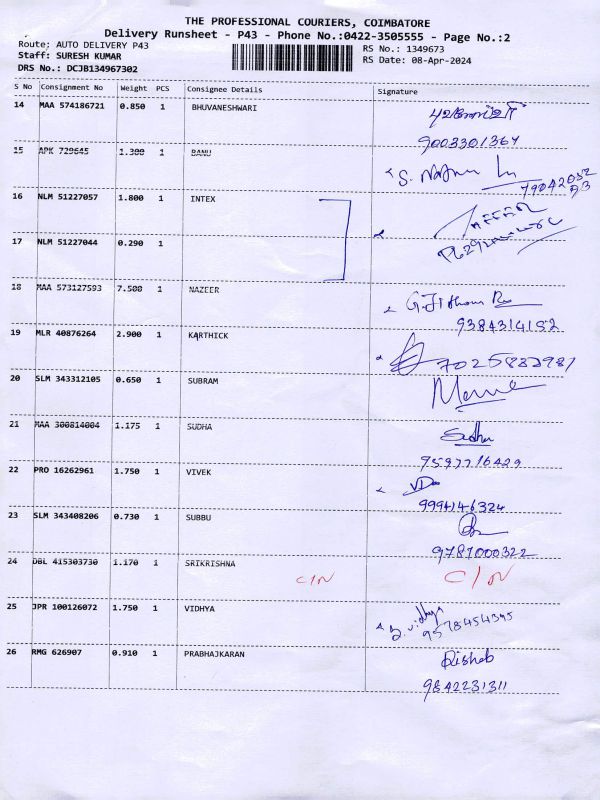 THE PROFESSIONAL COURIERS, COIMBATORE
Delivery Runsheet - P43 - Phone No.:0422-3505555 - Page No.:2
Route: AUTO DELIVERY P43
Staff: SURESH KUMAR
DRS No.: DCJB134967302
RS No.: 1349673
RS Date: 08-Apr-2024
S No Consignment No Weight PCS Consignee Details Signature
14 MAA 574186721 0.850 1 BHUVANESHWARI
9003301364
15 APK 729645 1.300 1 BANU
16 NLM 51227057 1.800 1 INTEX
17 NLM 51227044 0.290 1
18 MAA 573127593 7.500 1 NAZEER
9384314152
19 MLR 40876264 2.900 1 KARTHICK
7025883981
20 SLM 343312105 0.650 1 SUBRAM
21 MAA 300814004 1.175 1 SUDHA Sudha
7597716429
22 PRO 16262961 1.750 1 VIVEK
9994146324
23 SLM 343408206 0.730 1 SUBBU
9781000322
24 DBL 415303730 1.170 1 SRIKRISHNA C/N C/N
25 JPR 100126072 1.750 1 VIDHYA S.vidhya
9578454395
26 RMG 626907 0.910 1 PRABHAJKARAN Rishab
9842231311